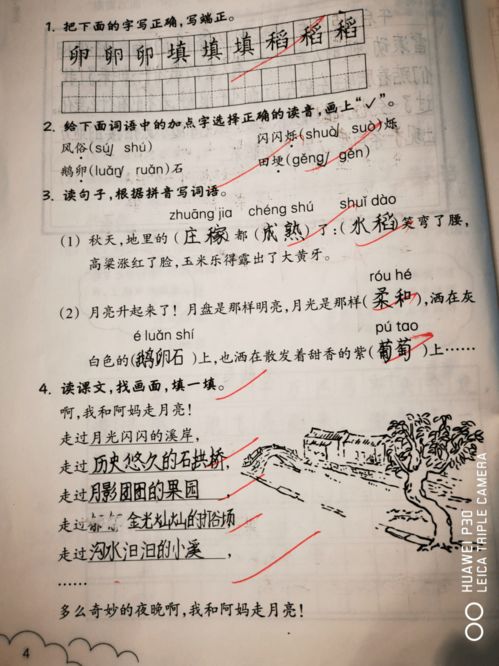 1. 把下面的字写正确,写端正。
卵 卵 卵 填 填 填 稻 稻 稻
2. 给下面词语中的加点字选择正确的读音,画上“✓”。
风俗(sú shú) 闪闪烁(shuò suò)烁
鹅卵(luǎn ruǎn)石 田埂(gěng gěn)
3. 读句子,根据拼音写词语。
zhuāng jia chéng shú shuǐ dào
(1) 秋天,地里的(庄稼)都(成熟)了:(水稻)笑弯了腰,
高粱涨红了脸,玉米乐得露出了大黄牙。
róu hé
(2) 月亮升起来了!月盘是那样明亮,月光是那样(柔和),洒在灰
é luǎn shí pú tao
白色的(鹅卵石)上,也洒在散发着甜香的紫(葡萄)上……
4. 读课文,找画面,填一填。
啊,我和阿妈走月亮!
走过月光闪闪的溪岸,
走过历史悠久的石拱桥,
走过月影团团的果园,
走过金光灿灿的打谷场
走过沟水汩汩的小溪,
……
多么奇妙的夜晚啊,我和阿妈走月亮!
4
HUAWEI P30
LEICA TRIPLE CAMERA